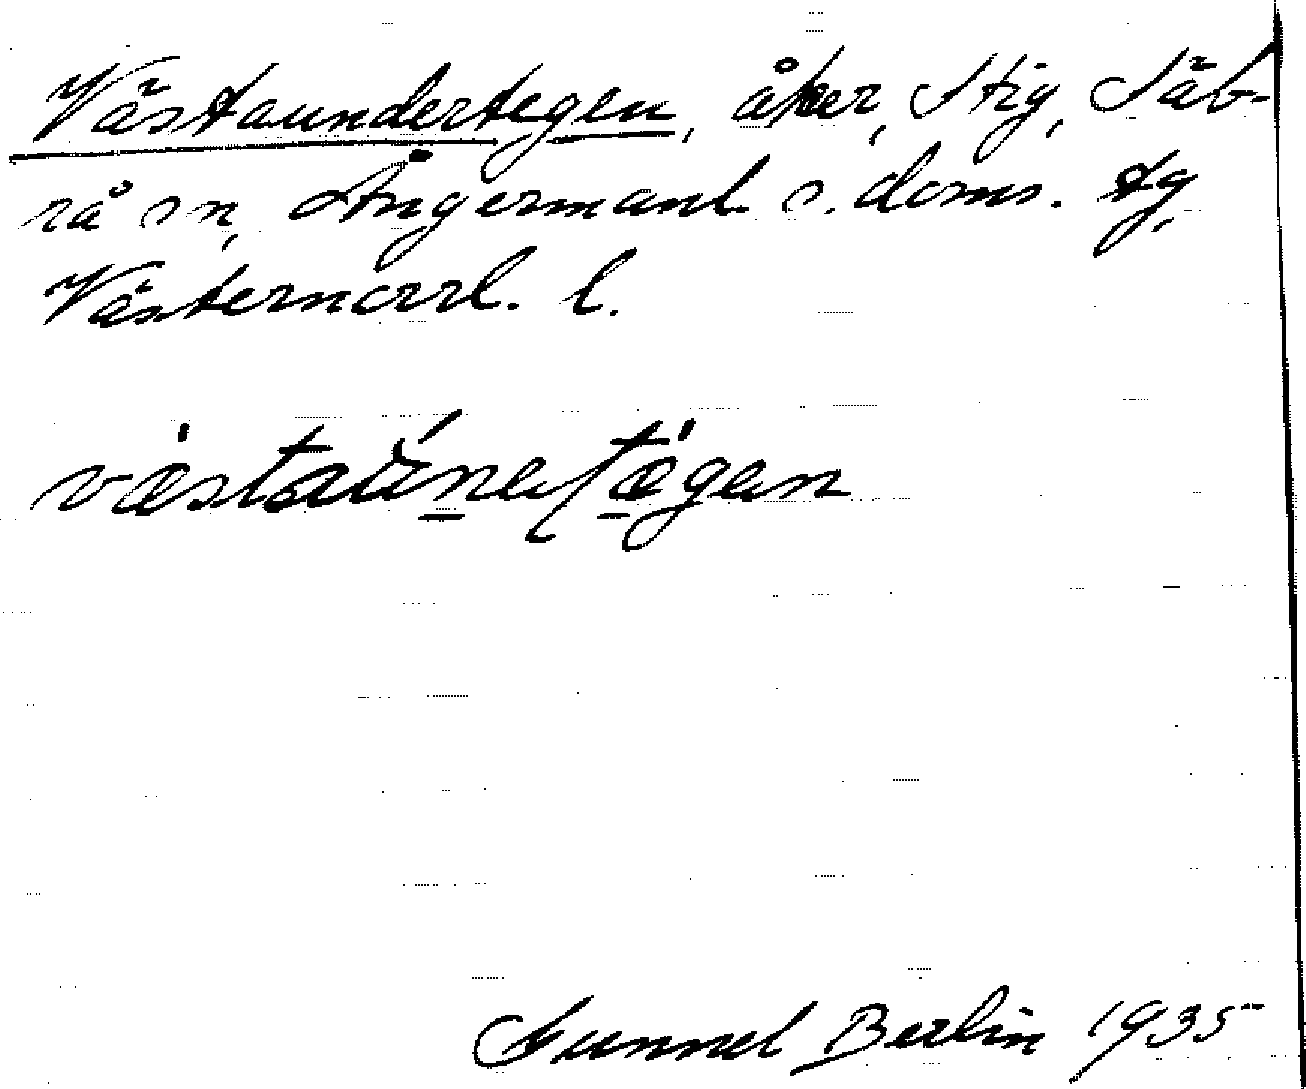 Västaundertegen, åker, Stig, Säb-
rå sn, Ångermanl. s. doms. tg,
Västernorrl. l.
Gunnel Berlin 1935